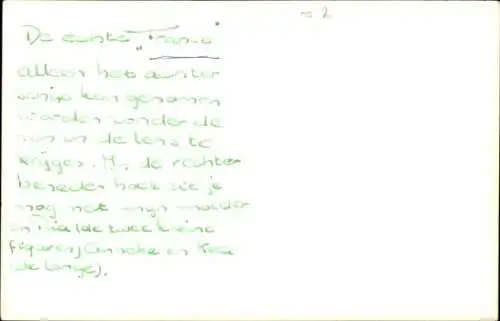 = 2
De eerste "Trans"
alleen het achter
kon genomen
worden zonder de
zon in de lens te
krijgen. In de rechter
beneden hoek zie je
nog net mijn moeder
en Mia (de twee kleine
figuren) en Kees
de Lange).